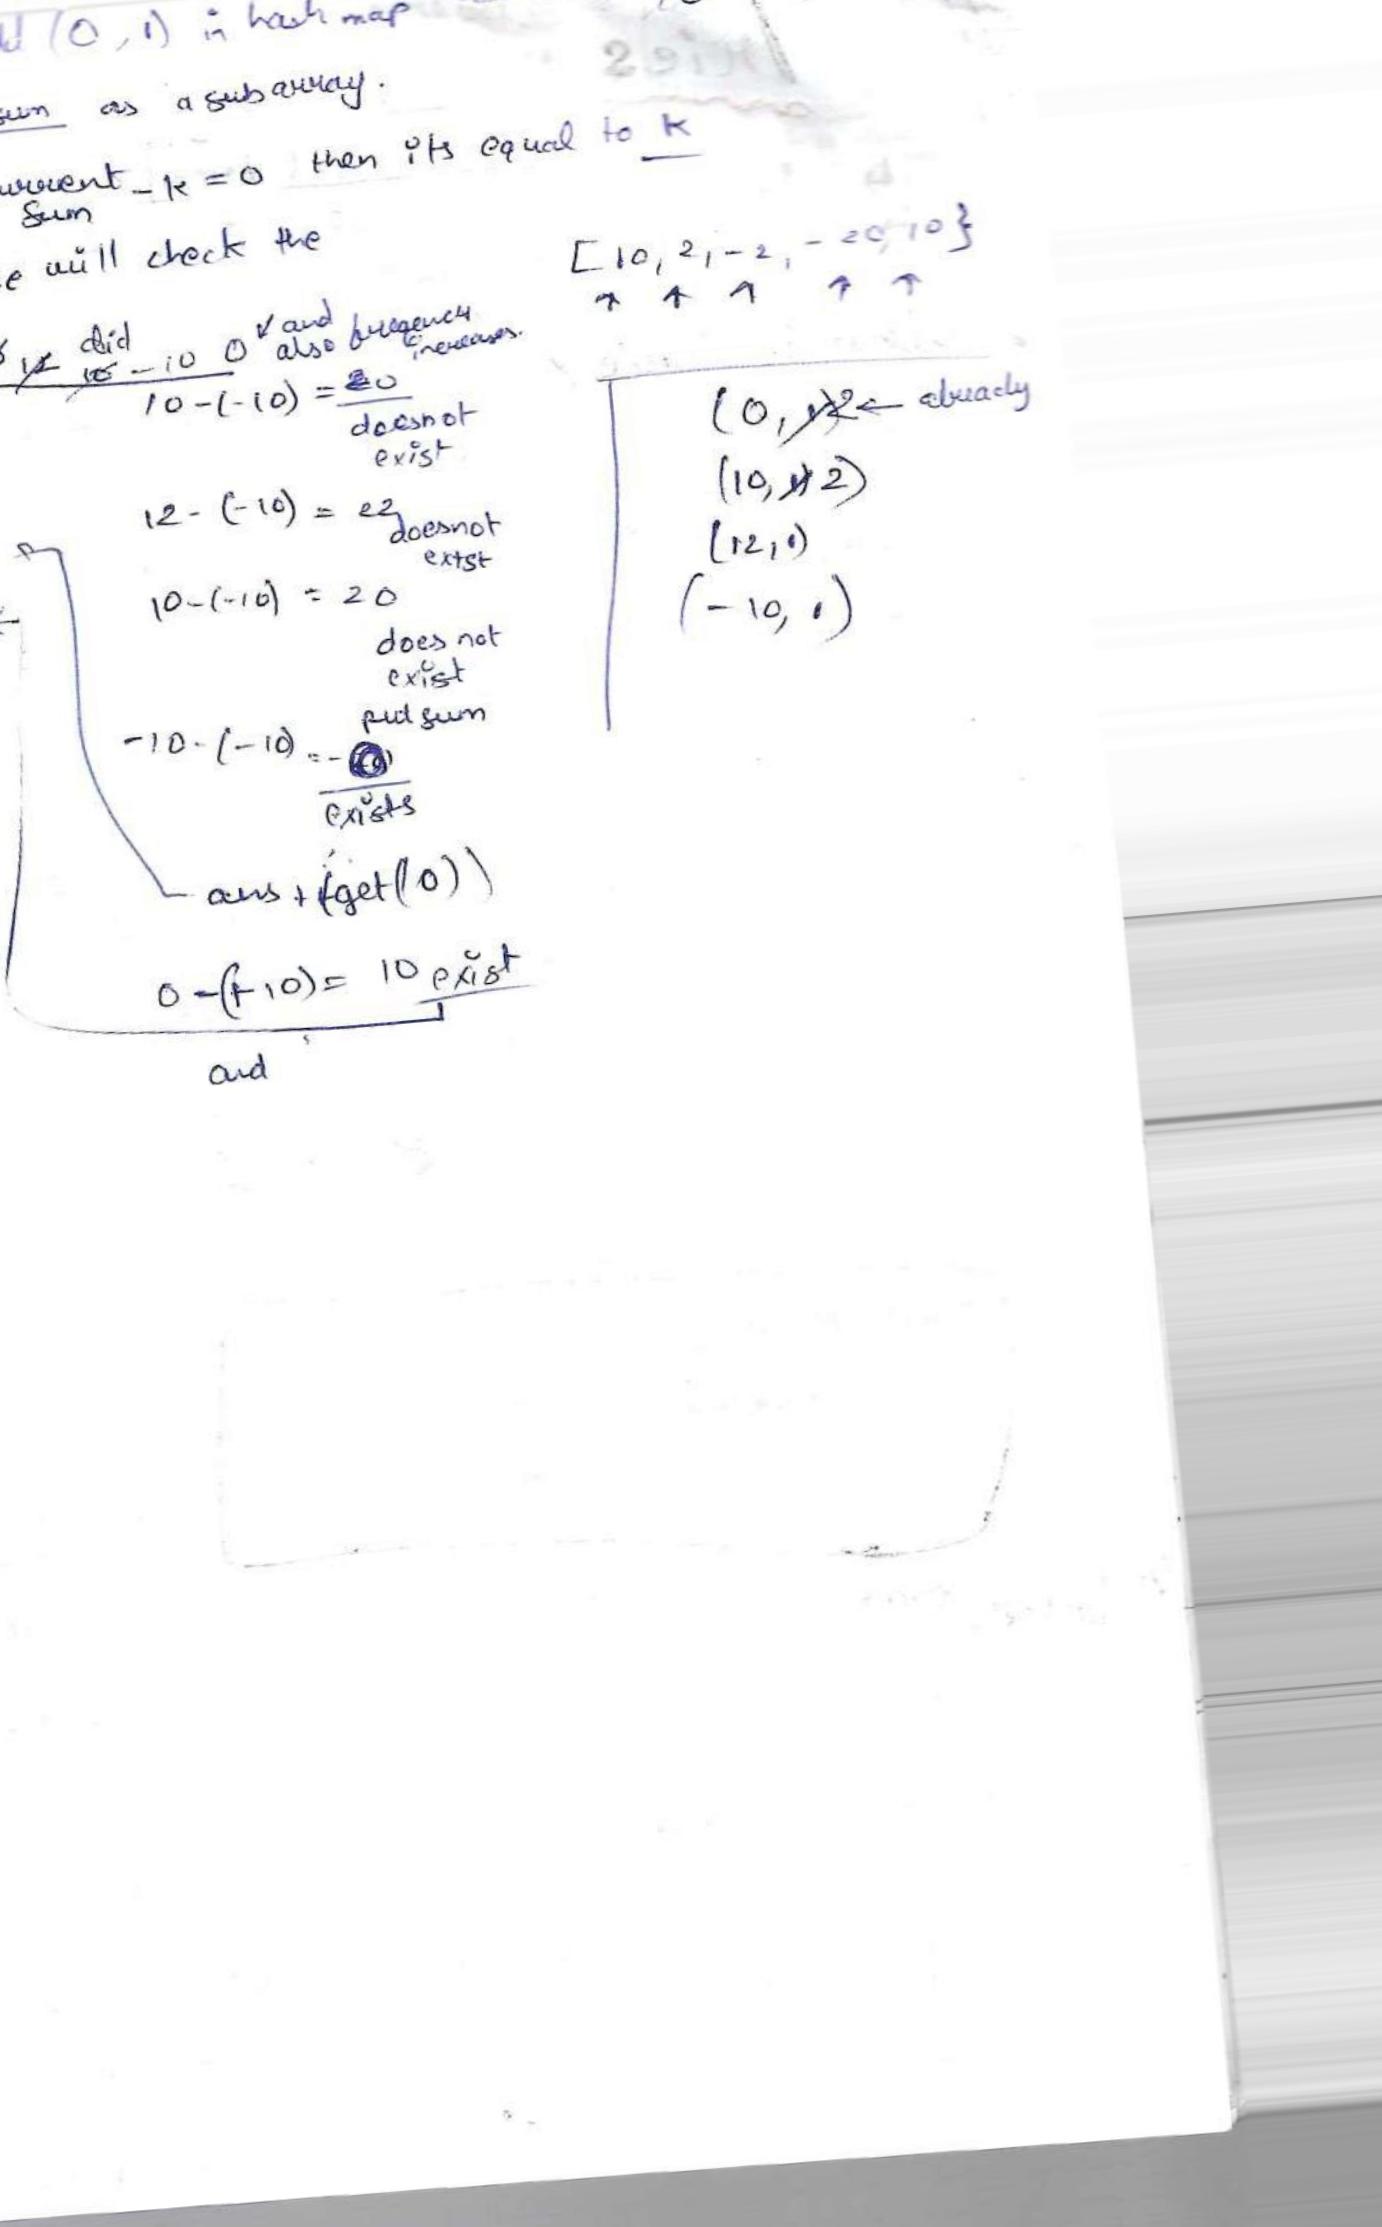 (0, 1) in hash map
sum as a subarray.
current - k = 0 then its equal to k
sum
e will check the
[10, 2, -2, -20, 10}
did - 10 0 and also frequency increases.
10-(-10) = 20
doesnot
exist
12 - (-10) = 22
doesnot
extst
10-(-10) = 20
does not
exist
put sum
-10-(-10) = -
exists
ans + (get(0))
0 -(-10) = 10 exist
and
(0, 1 2 ← already
(10, 1 2)
(12, 1)
(-10, 1)